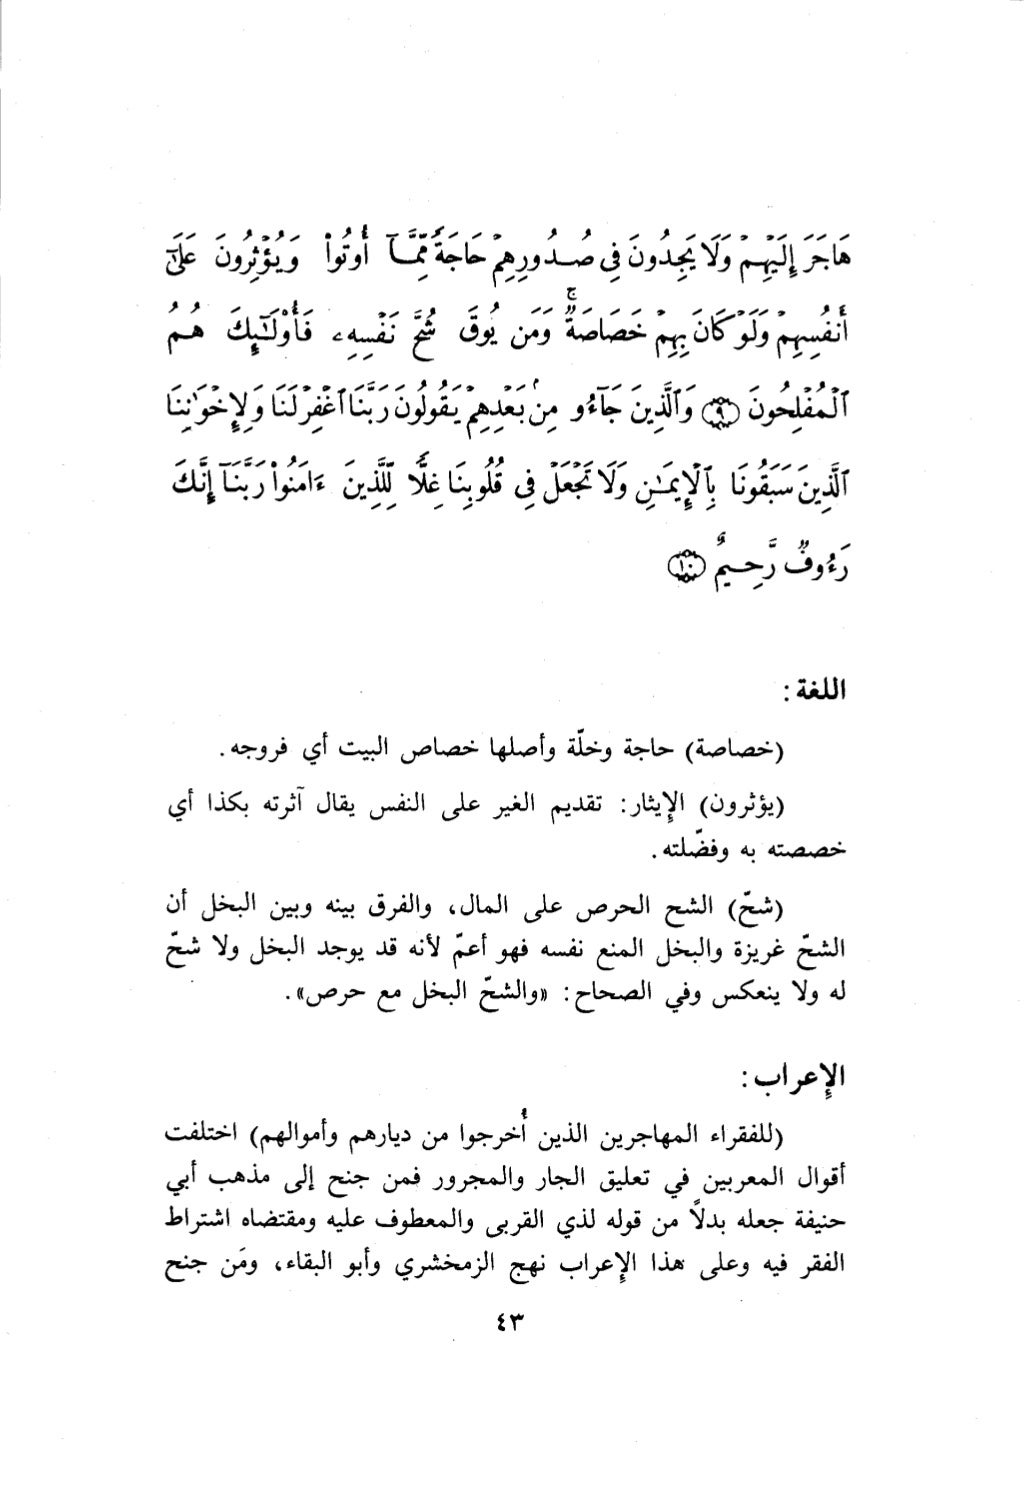 هَاجَرَ إِلَيْهِمْ وَلَا يَجِدُونَ فِى صُدُورِهِمْ حَاجَةً مِّمَّآ أُوتُواْ وَيُؤْثِرُونَ عَلَىٰٓ
أَنفُسِهِمْ وَلَوْ كَانَ بِهِمْ خَصَاصَةٌ ۚ وَمَن يُوقَ شُحَّ نَفْسِهِۦ فَأُوْلَـٰٓئِكَ هُمُ
ٱلْمُفْلِحُونَ ﴿٩﴾ وَٱلَّذِينَ جَآءُو مِنۢ بَعْدِهِمْ يَقُولُونَ رَبَّنَا ٱغْفِرْ لَنَا وَلِإِخْوَٰنِنَا
ٱلَّذِينَ سَبَقُونَا بِٱلْإِيمَـٰنِ وَلَا تَجْعَلْ فِى قُلُوبِنَا غِلًّا لِّلَّذِينَ ءَامَنُواْ رَبَّنَآ إِنَّكَ
رَءُوفٌ رَّحِيمٌ ﴿١٠﴾
اللغة :
(خصاصة) حاجة وخلّة وأصلها خصاص البيت أي فروجه .
(يؤثرون) الإِيثار: تقديم الغير على النفس يقال آثرته بكذا أي
خصصته به وفضّلته .
(شحّ) الشح الحرص على المال، والفرق بينه وبين البخل أن
الشحّ غريزة والبخل المنع نفسه فهو أعمّ لأنه قد يوجد البخل ولا شحّ
له ولا ينعكس وفي الصحاح: «والشحّ البخل مع حرص».
الإِعراب :
(للفقراء المهاجرين الذين أُخرجوا من ديارهم وأموالهم) اختلفت
أقوال المعربين في تعليق الجار والمجرور فمن جنح إلى مذهب أبي
حنيفة جعله بدلاً من قوله لذي القربى والمعطوف عليه ومقتضاه اشتراط
الفقر فيه وعلى هذا الإِعراب نهج الزمخشري وأبو البقاء، ومَن جنح
٤٣